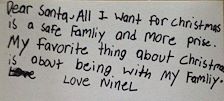 Dear Santa, All I want for christmas
is a safe Famliy and more prise.
My favorite thing about Christma
is about being with my Famliy.
Love
Love NineL